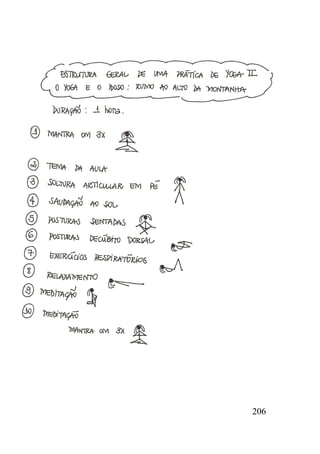 ESTRUTURA GERAL DE UMA PRÁTICA DE YOGA - II
O YOGA E O IDOSO: RUMO AO ALTO DA MONTANHA
DURAÇÃO: 1 hora.
1 MANTRA OM 3X
2 TEMA DA AULA
3 SOLTURA ARTICULAR EM PÉ
4 SAUDAÇÃO AO SOL
5 POSTURAS SENTADAS
6 POSTURAS DECÚBITO DORSAL
7 EXERCÍCIOS RESPIRATÓRIOS
8 RELAXAMENTO
9 MEDITAÇÃO
10 MEDITAÇÃO
MANTRA OM 3X
206